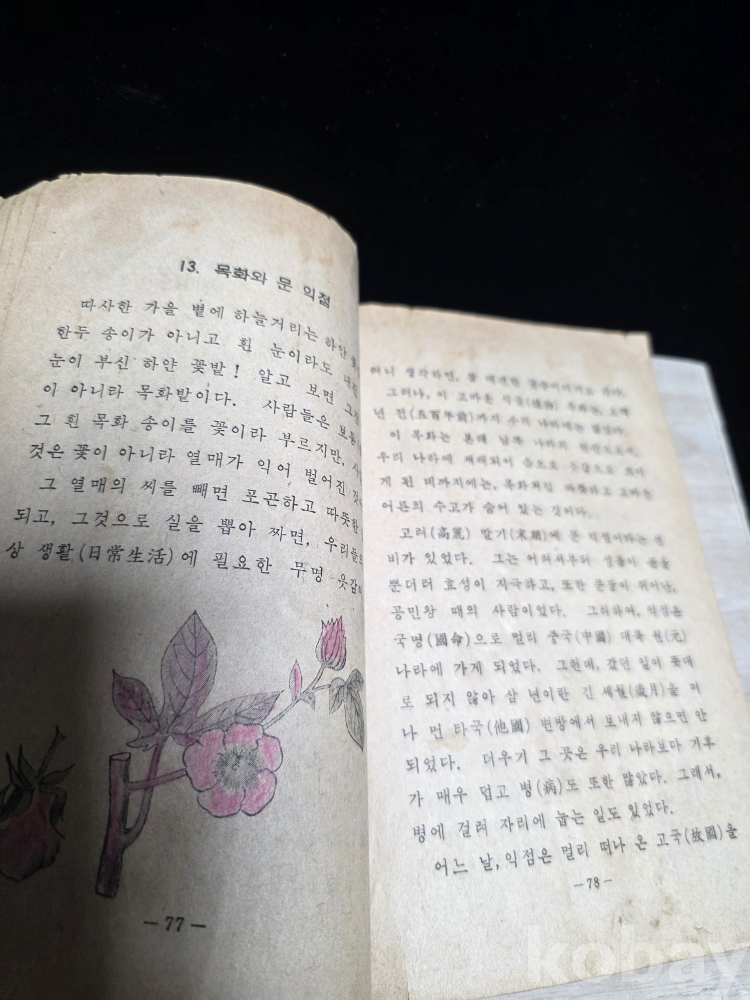 13. 목화와 문 익점
따사한 가을 볕에 하늘거리는 하얀
한두 송이가 아니고 흰 눈이라도
눈이 부신 하얀 꽃밭! 알고 보면 그것
이 아니라 목화밭이다. 사람들은 보통
그 흰 목화 송이를 꽃이라 부르지만,
것은 꽃이 아니라 열매가 익어 벌어진
그 열매의 씨를 빼면 포곤하고 따뜻한
되고, 그것으로 실을 뽑아 짜면, 우리들의
상 생활(日常生活)에 필요한 무명 옷감
—77—
러니 생각하면,
그러나, 이 고마운 식물(植物) 목화는,
년 전(五百年前)까지 우리 나라에는
이 목화는 본래 남쪽 나라의
우리 나라에 재배되어
게 된 데까지에는, 목화처럼 따뜻하고 고마운
어른의 수고가 숨어 있는 것이다.
고려(高麗) 말기(末期)에 문 익점이라는 선
비가 있었다. 그는 어려서부터 성품이
뿐더러 효성이 지극하고, 또한 문장이 뛰어난,
공민왕 때의 사람이었다. 그리하여, 익점은
국명(國命)으로 멀리 중국(中國) 대륙 원(元)
나라에 가게 되었다. 그런데, 갔던 일이 뜻대
로 되지 않아 삼 년이란 긴 세월(歲月)을 머
나 먼 타국(他國) 변방에서 보내지 않으면 안
되었다. 더우기 그 곳은 우리 나라보다 기후
가 매우 덥고 병(病)도 또한 많았다. 그래서,
병에 걸려 자리에 눕는 일도 있었다.
어느 날, 익점은 멀리 떠나 온 고국(故國)을
—78—
kobay